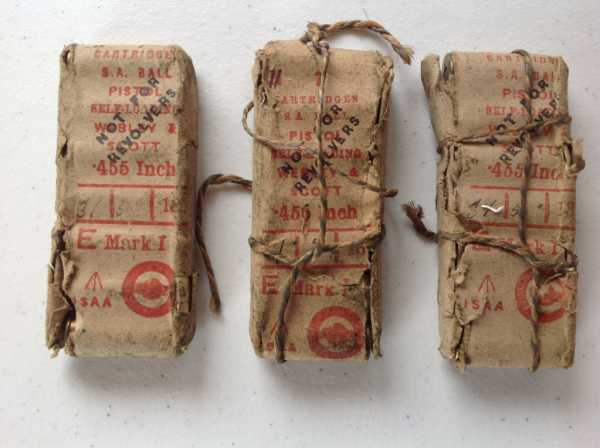 CARTRIDGES
S.A. BALL
PISTOL
SELF-LOADING
WEBLEY &
SCOTT
.455 Inch
NOT FOR
REVOLVERS
E Mark I
SAA
CARTRIDGES
S.A.
PISTOL
SELF-LOADING
WEBLEY &
SCOTT
.455 Inch
NOT FOR
REVOLVERS
E Mark I
SAA
CARTRIDGES
S.A. BALL
PISTOL
SELF-LOADING
WEBLEY &
SCOTT
.455 Inch
NOT FOR
REVOLVERS
E Mark I
SAA